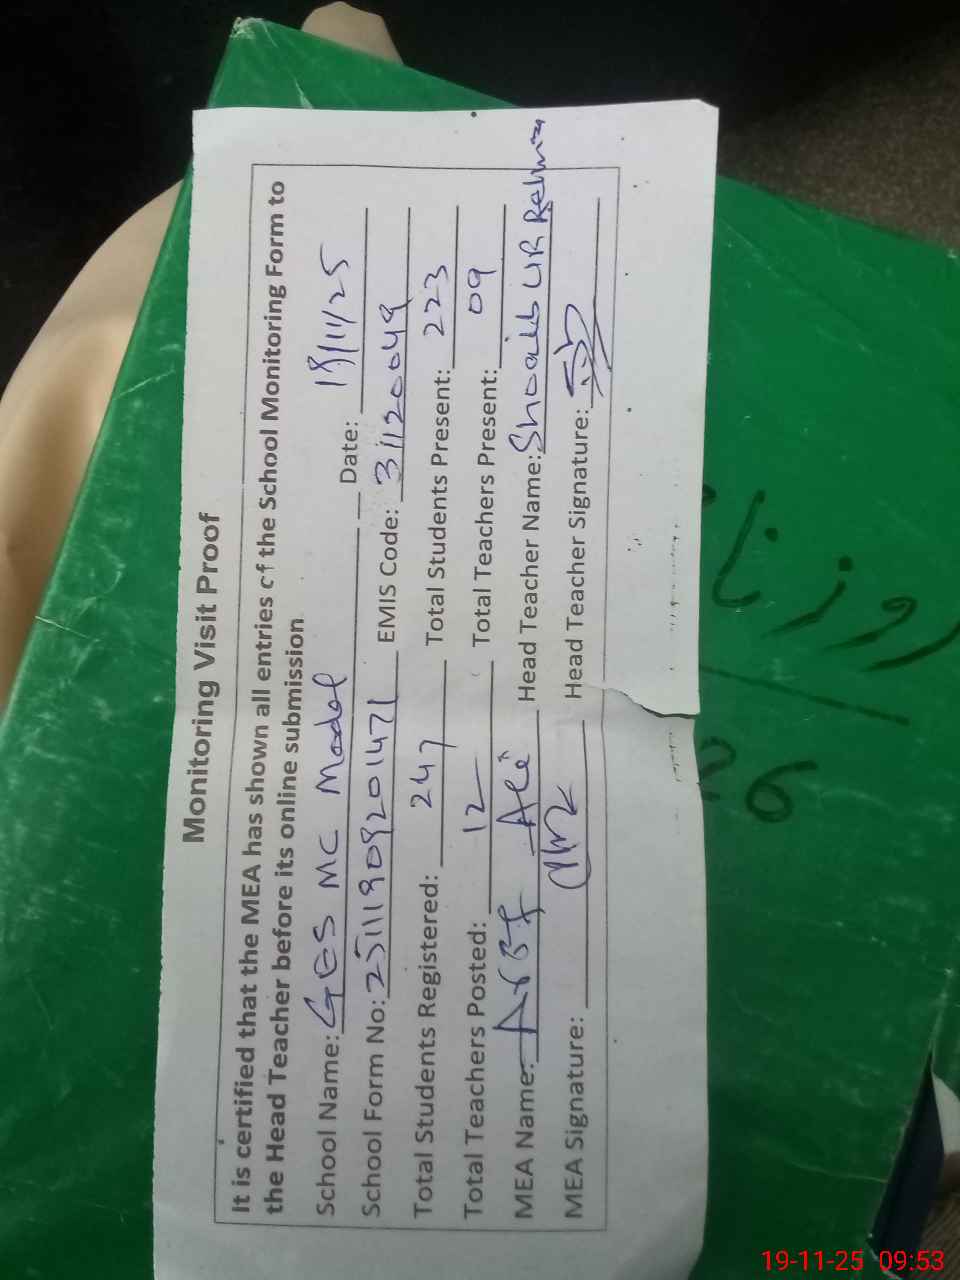 Monitoring Visit Proof
It is certified that the MEA has shown all entries of the School Monitoring Form to
the Head Teacher before its online submission
School Name: GES MC Model Date: 19/11/25
School Form No: 25111909201471 EMIS Code: 31120049
Total Students Registered: 247 Total Students Present: 223
Total Teachers Posted: 12 Total Teachers Present: 09
MEA Name: Ali Head Teacher Name: Shoaib UR Rehman
MEA Signature: Head Teacher Signature:
26
19-11-25 09:53